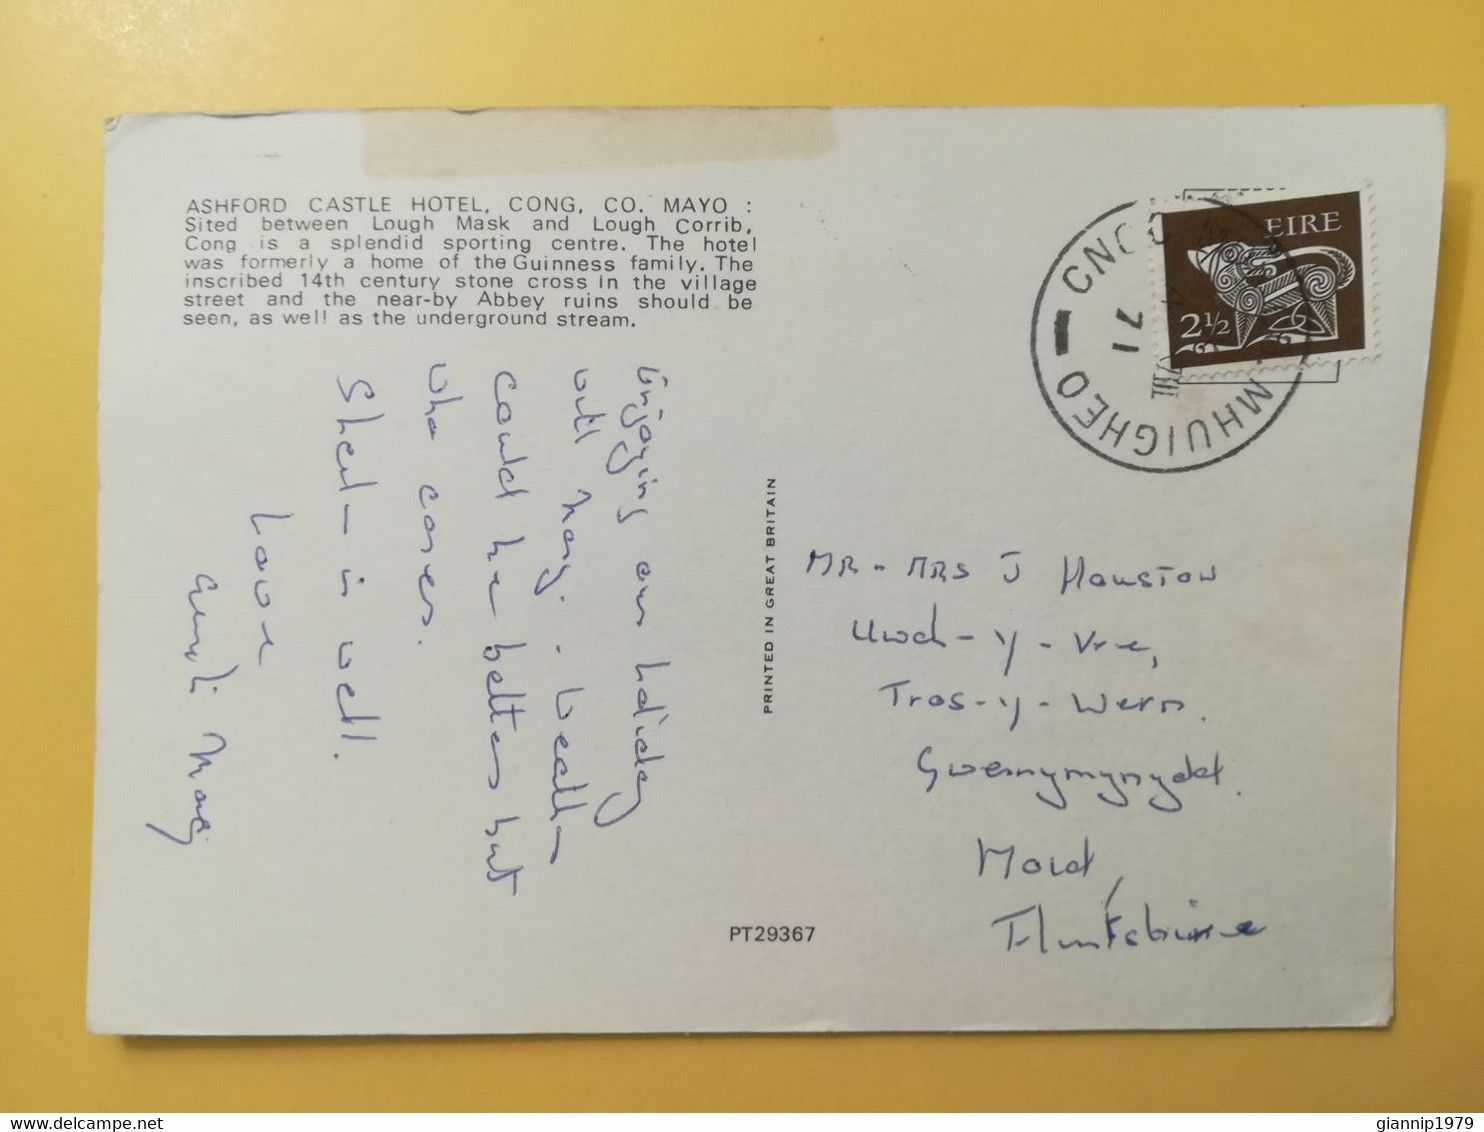 ASHFORD CASTLE HOTEL, CONG, CO. MAYO :
Sited between Lough Mask and Lough Corrib,
Cong is a splendid sporting centre. The hotel
was formerly a home of the Guinness family. The
inscribed 14th century stone cross in the village
street and the near-by Abbey ruins should be
seen, as well as the underground stream.
Enjoying our holiday
with Mary. Weather
could be better but
who cares.
Sheil is well.
Love
Aunty Mary
PRINTED IN GREAT BRITAIN
PT29367
EIRE
2½
CNOC MHUIGHEO
71
MR - MRS J Houston
Uwch-y-Vre,
Tros-y-Wern.
Gwernymynydd.
Mold,
Flintshire
giannip1979